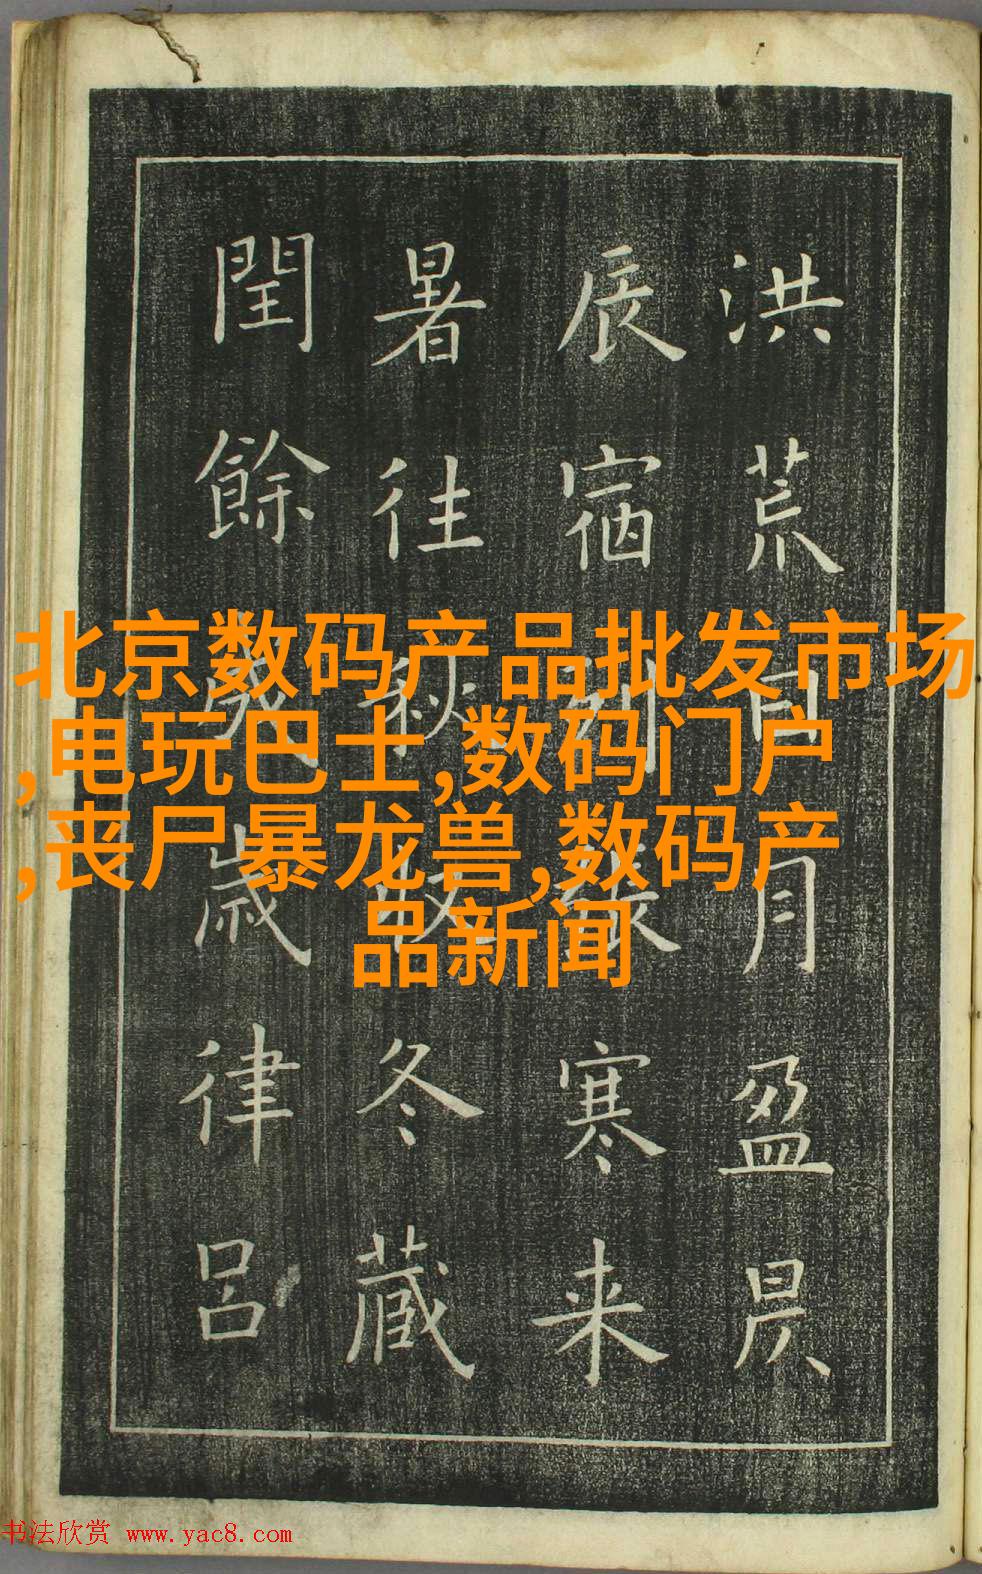 洪荒日月盈昃
辰宿列張寒来
暑往秋收冬藏
閏餘成歲律呂
北京数码产品批发市场
,电玩巴士,数码门户
,丧尸暴龙兽,数码产
品新闻
书法欣赏 www.yac8.com